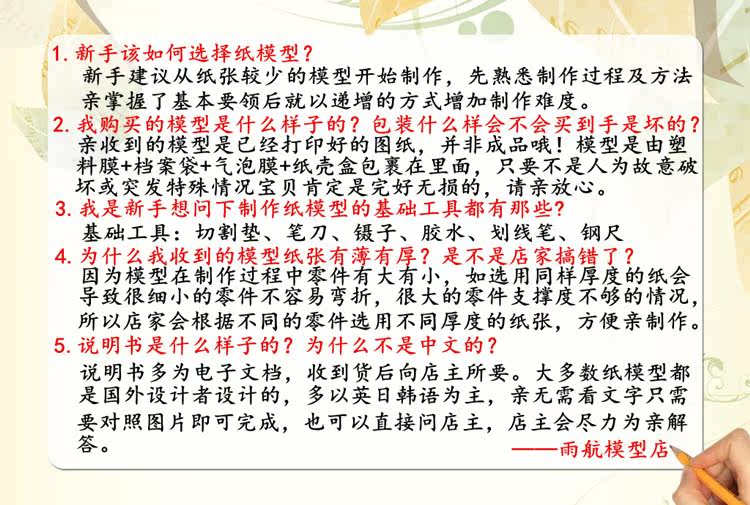 1. 新手该如何选择纸模型？
新手建议从纸张较少的模型开始制作，先熟悉制作过程及方法
亲掌握了基本要领后就以递增的方式增加制作难度。
2. 我购买的模型是什么样子的？包装什么样会不会买到手是坏的？
亲收到的模型是已经打印好的图纸，并非成品哦！模型是由塑
料膜+档案袋+气泡膜+纸壳盒包裹在里面，只要不是人为故意破
坏或突发特殊情况宝贝肯定是完好无损的，请亲放心。
3. 我是新手想问下制作纸模型的基础工具都有那些？
基础工具：切割垫、笔刀、镊子、胶水、划线笔、钢尺
4. 为什么我收到的模型纸张有薄有厚？是不是店家搞错了？
因为模型在制作过程中零件有大有小，如选用同样厚度的纸会
导致很细小的零件不容易弯折，很大的零件支撑度不够的情况，
所以店家会根据不同的零件选用不同厚度的纸张，方便亲制作。
5. 说明书是什么样子的？为什么不是中文的？
说明书多为电子文档，收到货后向店主所要。大多数纸模型都
是国外设计者设计的，多以英日韩语为主，亲无需看文字只需
要对照图片即可完成，也可以直接问店主，店主会尽力为亲解
答。
——雨航模型店